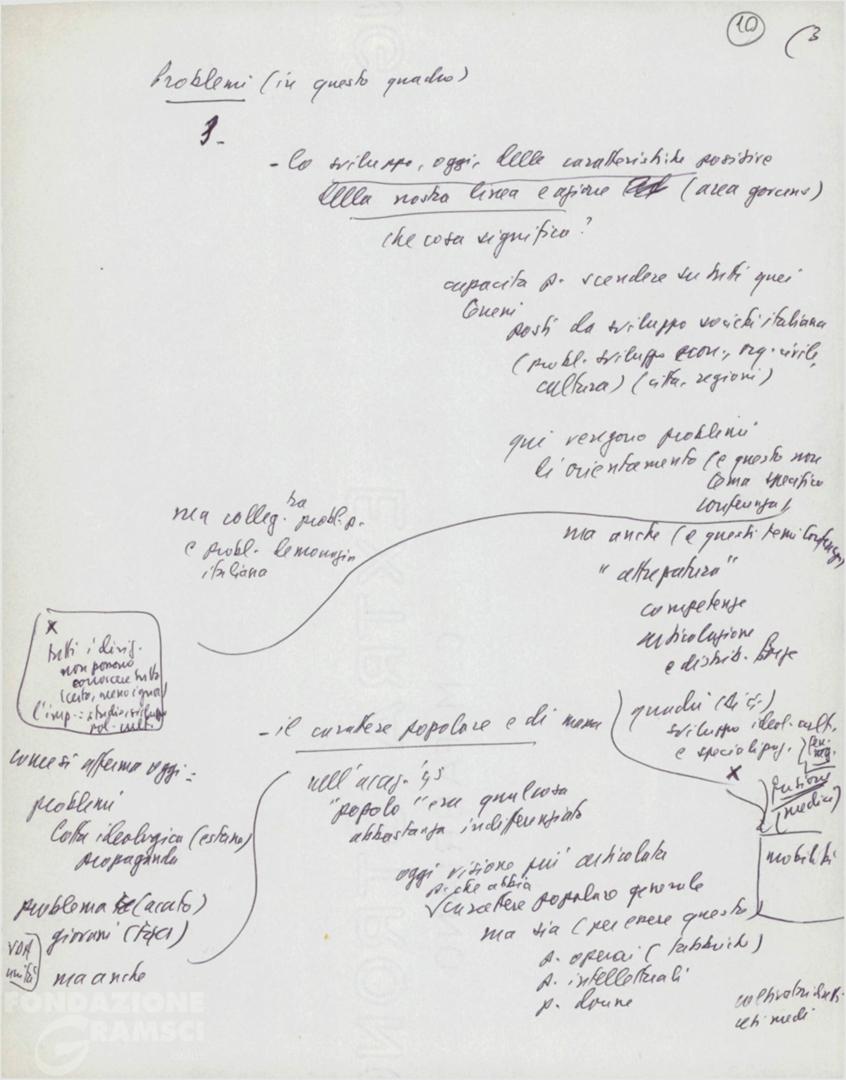 10
(3
Problemi (in questo quadro)
1-
- lo sviluppo, oggi, delle caratteristiche positive
della nostra linea e azione (area governo)
che cosa significa?
capacità p. scendere su tutti quei
terreni
posti da sviluppo società italiana
(probl. sviluppo econ., org. civile,
cultura) (città, regioni)
qui vengono problemi
di orientamento (e questo non
tema specifico
conferenza)
ma colleg. tra probl. p.
e probl. democrazia
italiana
ma anche (e questi temi conferenza)
"attrezzatura"
competenze
articolazione
e distrib. forze
x
tutti i dirig.
non possono
conoscere tutto
(certo, meno ignor.)
l'imp.: studio, sviluppo
pol. cult.
quadri
sviluppo ideol. cult.
e specializzaz.
x
fusione
(medici)
mobilità
- il carattere popolare e di massa
nell'
"popolo" era qualcosa
abbastanza indifferenziato
oggi visione più articolata
p. che abbia
carattere popolare generale
ma sia (per essere questo)
p. operai (fabbriche)
p. intellettuali
p. donne
coltivatori dirett.
ceti medi
come si afferma oggi:
problemi
lotta ideologica (esterna)
propaganda
problema
giovani
unità
ma anche
FONDAZIONE
GRAMSCI